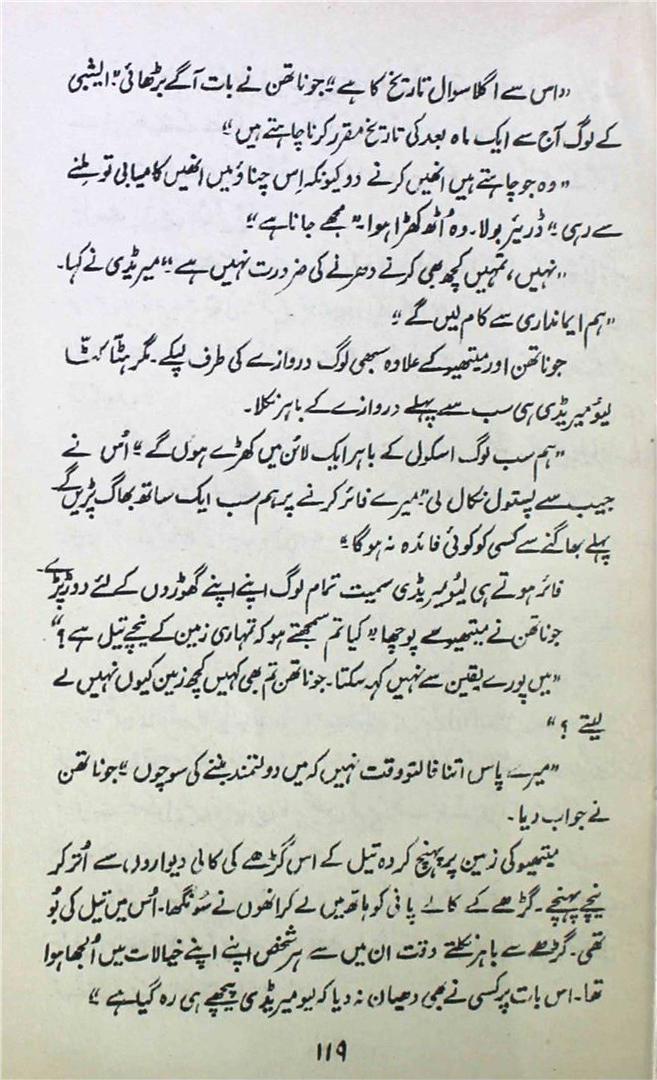 ”اس سے اگلا سوال تاریخ کا ہے“ جوناتھن نے بات آگے بڑھائی ”ایشبی
کے لوگ آج سے ایک ماہ بعد کی تاریخ مقرر کرنا چاہتے ہیں“
”وہ جو چاہتے ہیں انھیں کرنے دو کیونکہ اِس چناؤ میں انھیں کامیابی تو ملنے
سے رہی“ ڈریئر بولا۔ وہ اُٹھ کھڑا ہوا۔ ”مجھے جانا ہے“
”نہیں، تمہیں کچھ بھی کرنے دھرنے کی ضرورت نہیں ہے“ میریڈی نے کہا۔
”ہم ایمانداری سے کام لیں گے“
جوناتھن اور میتھیو کے علاوہ سبھی لوگ دروازے کی طرف لپکے۔ مگر ہٹّا کٹّا
لیؤ میریڈی ہی سب سے پہلے دروازے کے باہر نکلا۔
”ہم سب لوگ اسکول کے باہر ایک لائن میں کھڑے ہوں گے“ اُس نے
جیب سے پستول نکال لی ”میرے فائر کرنے پر ہم سب ایک ساتھ بھاگ پڑیں گے
پہلے بھاگنے سے کسی کو کوئی فائدہ نہ ہوگا“
فائر ہوتے ہی لیؤ میریڈی سمیت تمام لوگ اپنے اپنے گھوڑوں کے لئے دوڑ پڑے
جوناتھن نے میتھیو سے پوچھا ”کیا تم سمجھتے ہو کہ تمہاری زمین کے نیچے تیل ہے؟“
”میں پورے یقین سے نہیں کہہ سکتا۔ جوناتھن تم بھی کہیں کچھ زمین کیوں نہیں لے
لیتے؟“
”میرے پاس اتنا فالتو وقت نہیں کہ میں دولتمند بننے کی سوچوں“ جوناتھن
نے جواب دیا۔
میتھیو کی زمین پر پہنچ کر وہ تیل کے اس گڑھے کی کالی دیواروں سے اُتر کر
نیچے پہنچے۔ گڑھے کے کالے پانی کو ہاتھ میں لے کر انھوں نے سُونگھا۔ اُس میں تیل کی بُو
تھی۔ گڑھے سے باہر نکلتے وقت ان میں سے ہر شخص اپنے اپنے خیالات میں اُلجھا ہوا
تھا۔ اس بات پر کسی نے بھی دھیان نہ دیا کہ لیو میریڈی پیچھے ہی رہ گیا ہے“
۱۱۹